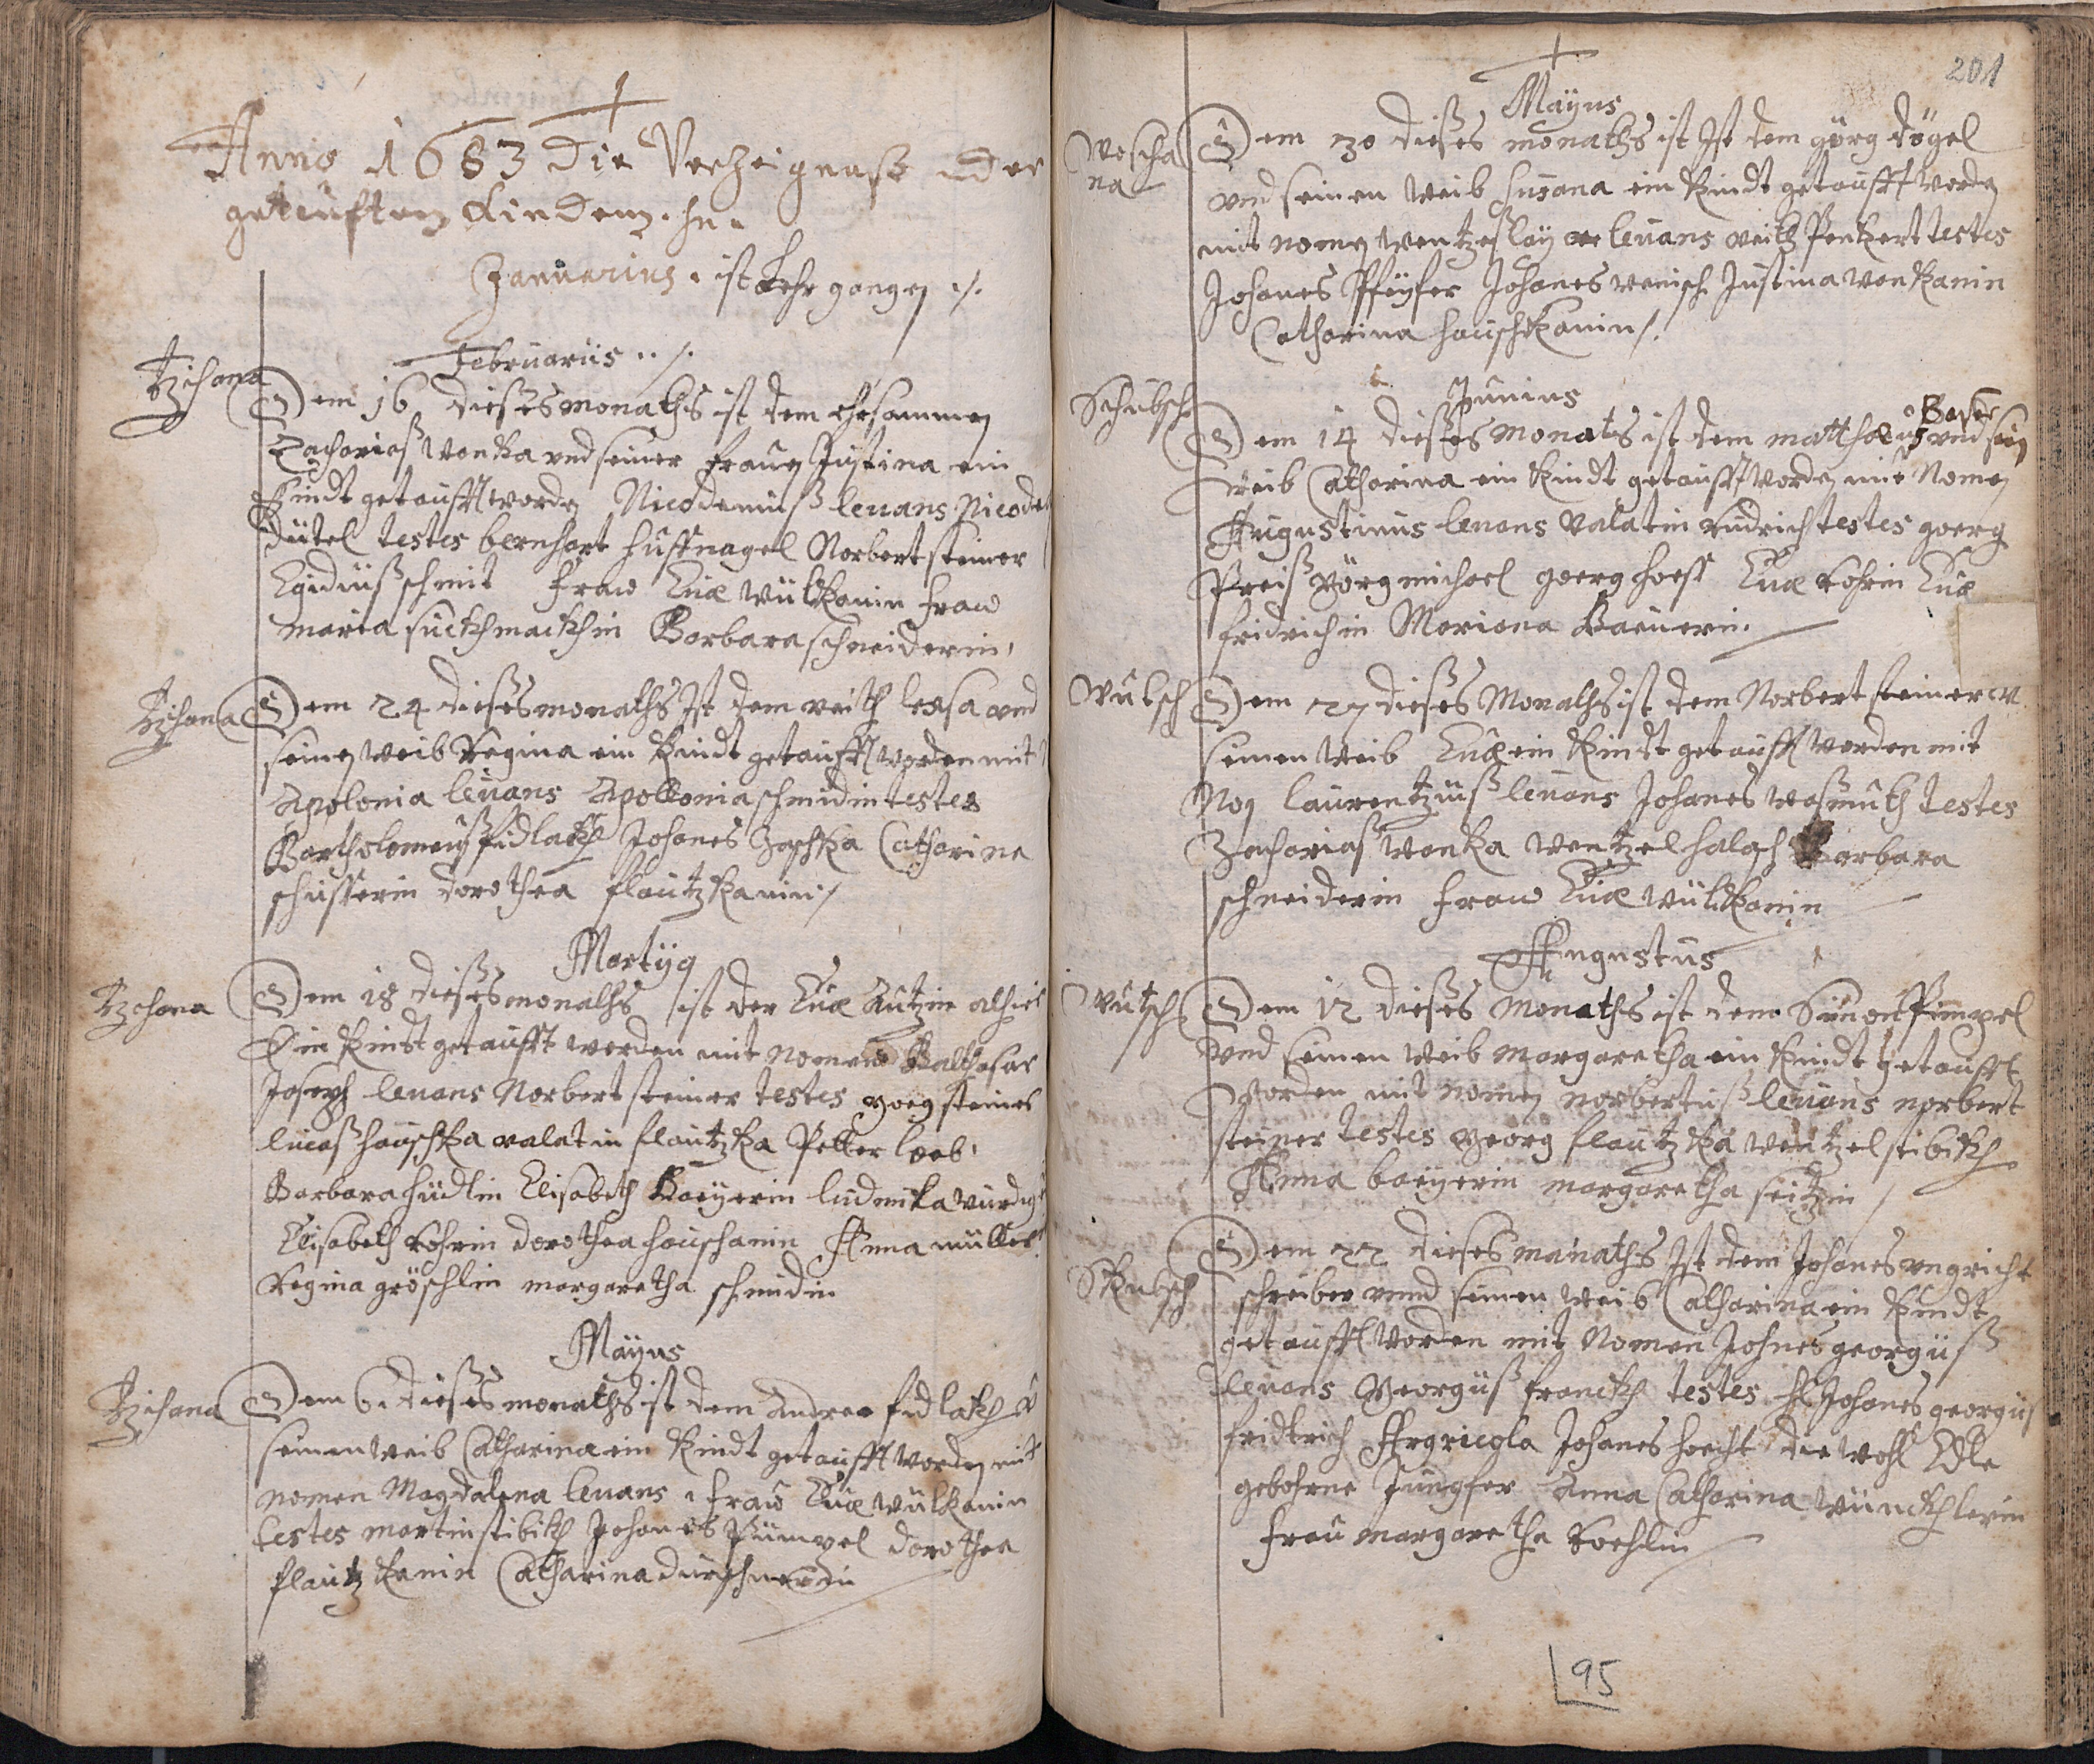 Anno 1683 die Verzeignuß der
getauften Kindern.
Januarius ist lehr gangen ./.
Februarius ../.
Tzschana
Dem 16 dießes monaths ist dem ehrsammen
Zacharias Wonka vnd seiner frauen Justina ein
Kindt getaufft worden Nicodemuß levans Nicode
testes bernhart huffnagel Norbert steiner
Egidiuß schmit fraw Euæ Wülkanin fraw
maria Barbara schneiderin,
Tzschana
Dem 24 dießes monaths Ist dem veith lexa vnd
seinen weib Regina ein Kindt getaufft worden mit
Apolonia levans Apollonia schmidin testes
Bartholomeuß fidlackh Johanes Catharina
schusterin dorothea flautzkanin /
Martÿ
Tzschana
Dem 18 dießes monaths ist der Euæ alhier
Ein Kindt getaufft worden mit nomen Balthasar
Joseph levans Norbert steiner testes georg steiner
lucaß hauschka valatin flautzka Petter loeb,
Barbara hüdlin Elisabeth Baeÿerin ludmila
Elisabeth Rohrin dorothea hauschanin Anna müller
Regina gröschlin margaretha schmidin
Maÿus
Tzschana
Dem 6. dießes monaths ist dem Andrea fidlackh v
seinen weib Catharina ein Kindt getaufft worden mit
nomen Magdalena levans . fraw Euæ Wülkanin
testes martin stibikh Johanes Pümpel dorothea
flautzkanin Catharina
201
Maÿus
Woscha
na
Dem 30 dießes monaths ist Ist dem görg Vögel
vnd seinen weib susana ein Kindt getaufft worden
mit nomen Wentzeßlaÿ levans veith Penkert testes
Johanes Pfeÿfer Johanes Justina Wonkanin
Catharina hauschkanin /.
Junius
Schübsch
Baser
Dem 14 dießes monats ist dem matthæuß vnd sein
weib Catharina ein Kindt getaufft worden mit Nomen
Augustinus levans Valatin testes goerg
Preiß görg michael goerg hoess Euæ Rohrin Euæ
fridrichin Mariana Baeuerin.
Wutsch
Dem 27 dießes Monaths ist dem Norbert steiner v
seinen weib Euæ ein Kindt getaufft worden mit
Nom laurentziuß levans Johanes waßmuth testes
Zacharias Wonka Wentzel Barbara
schneiderin fraw Euæ Wülkanin
Augustus
Wutsch
Dem 12 dießes Monaths ist dem Simon Pimpel
vnd seinen weib margaretha ein Kindt getaufft
worden mit nomen norbertuß levans norbert
steiner testes georg flautzka Wentzel stibikh
Anna baeÿerin margaretha seitzin
Skubsch
Dem 22 dieses manaths Ist dem Johanes
schreiber vnnd seinen weib Catharina ein Kindt
getaufft worden mit Nomen Johnes georgiuß
levans Georgiuß franckh testes H Johanes georgius
fridrich Agricola Johanes hoecht die wohl Edle
gebohrne Jungfer Anna Catharina Wünckhlerin
frau margaretha Koehlin
95